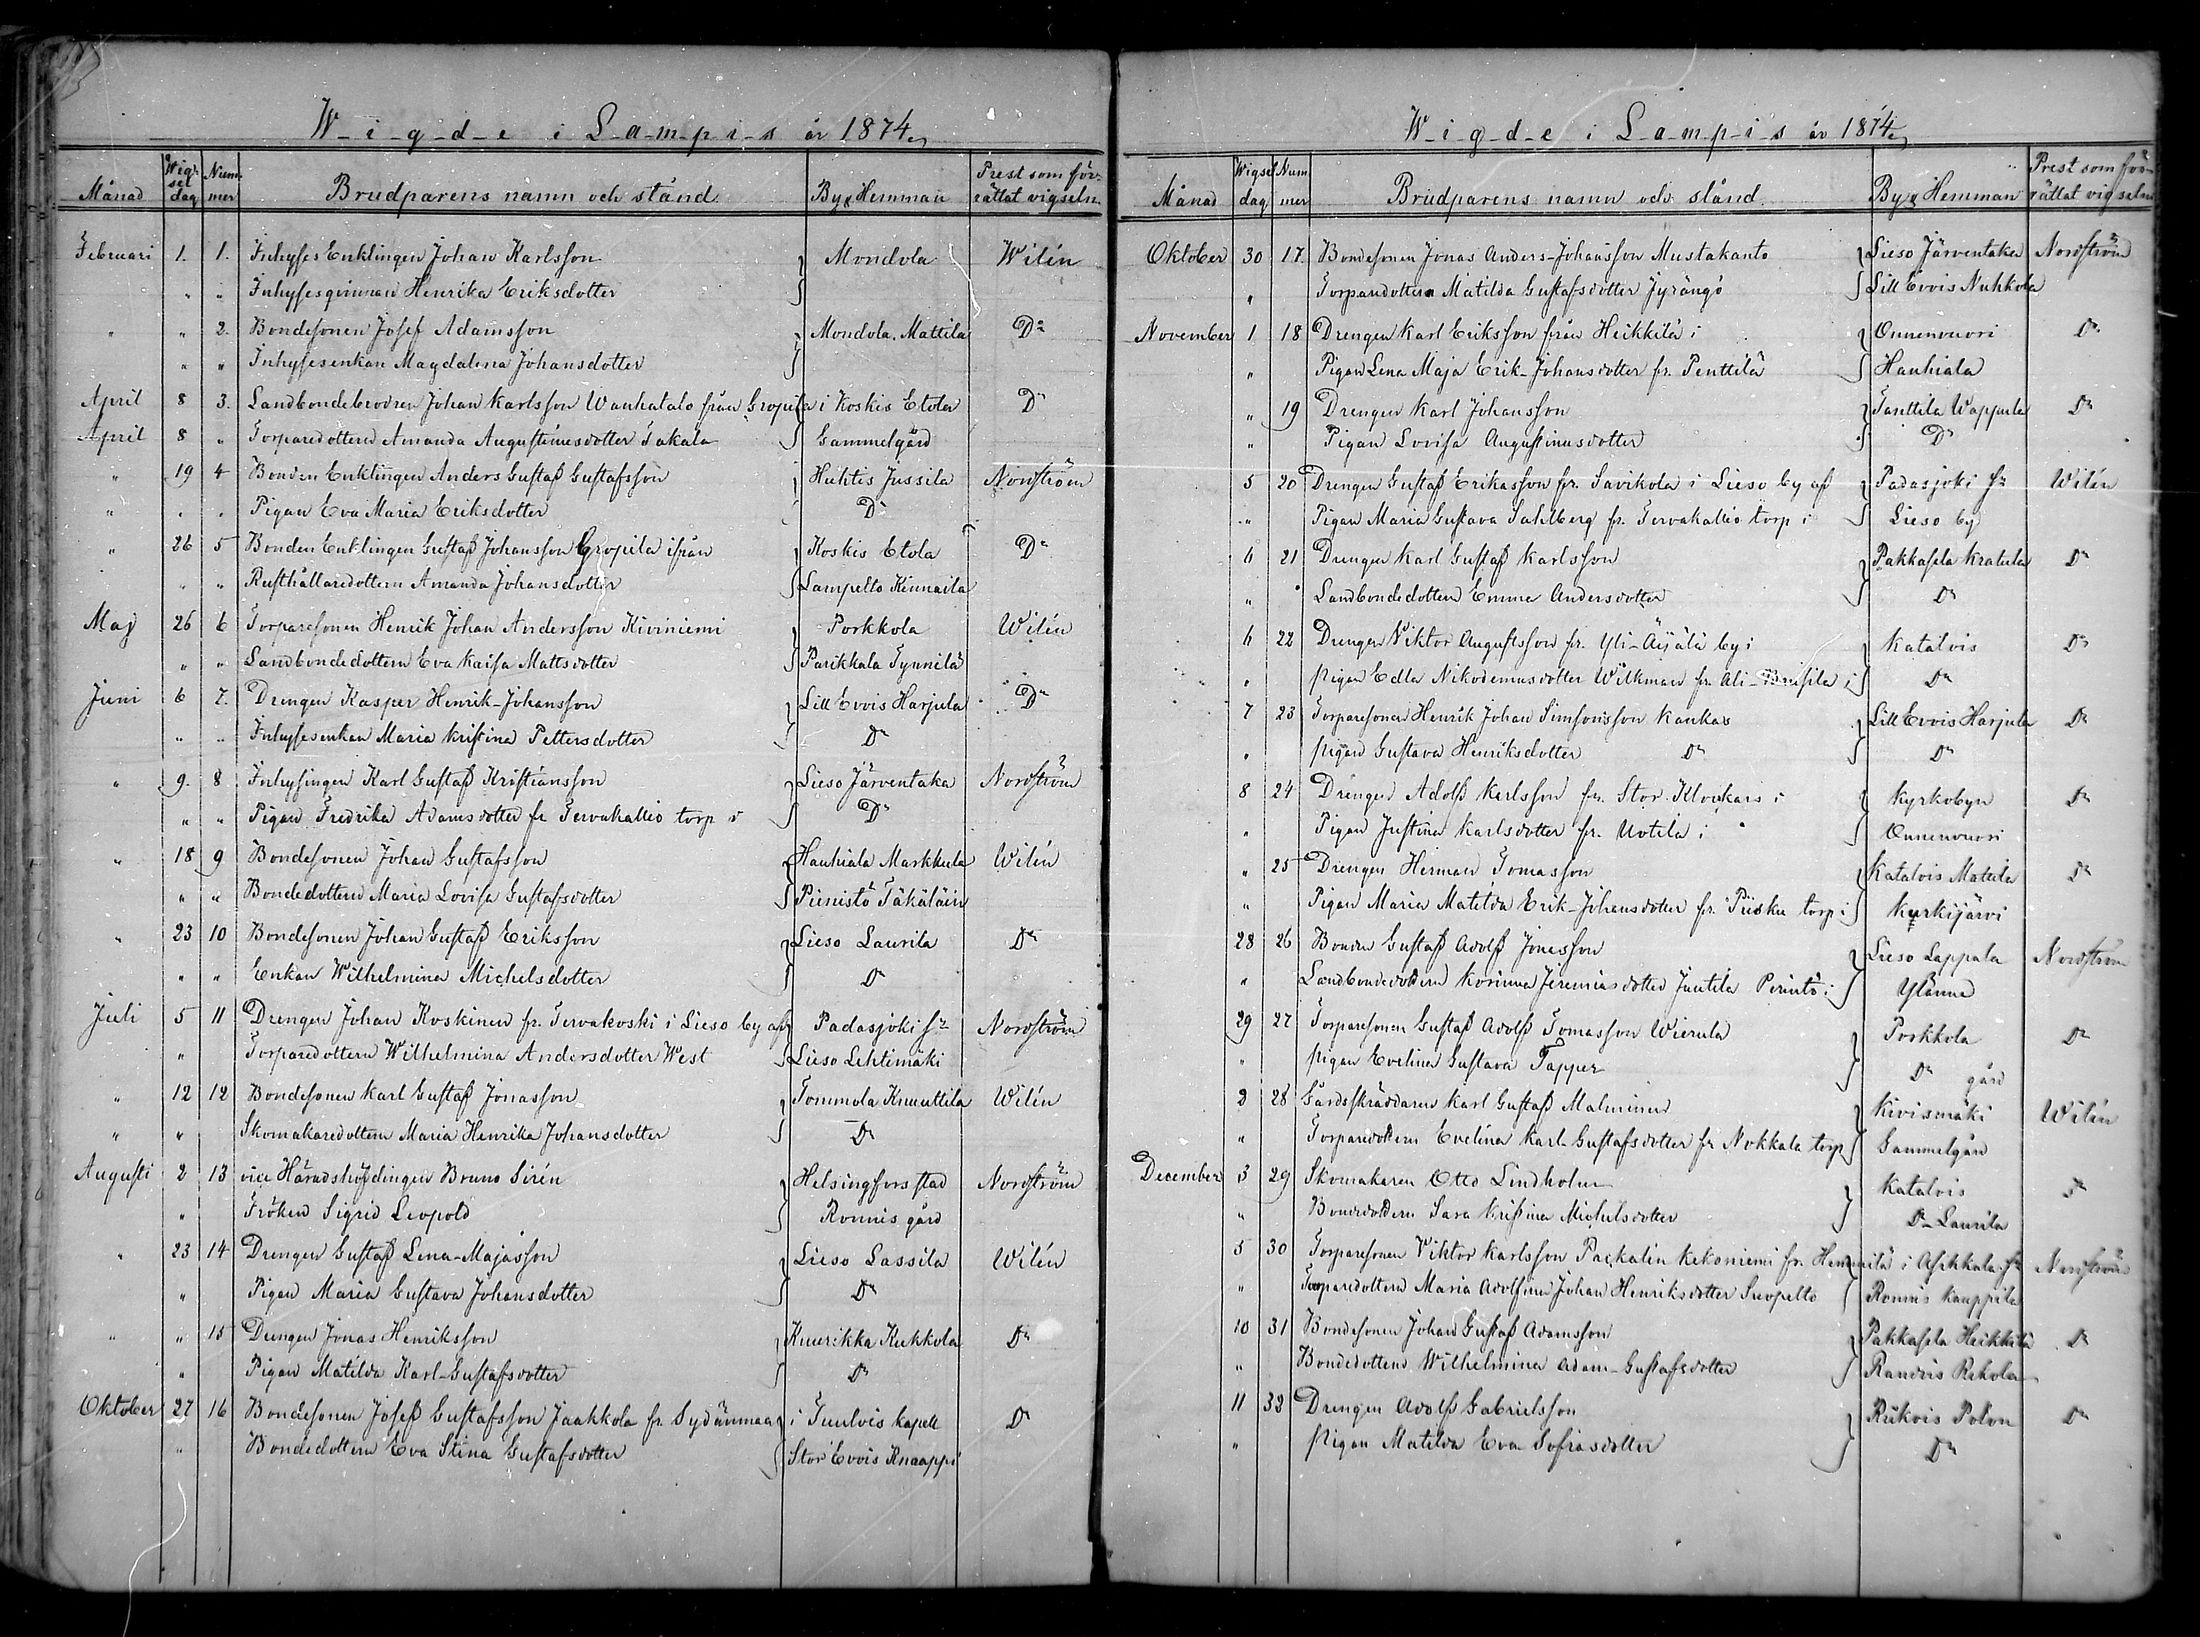 W-i-g-d-e i L-a-m-p-i-s år 1874.
Månad Wigsel dag Nummer Brudparens namn och stånd By & Hemman Prest som förrättat vigseln
Februari 1. 1. Inhyses Enklingen Johan Karlsson Mondola Wilén
" " Inhysesqvinnan Henrika Eriksdotter
" " 2. Bondesonen Josef Adamsson Mondola. Mattila Do
" " Inhysesenkan Magdalena Johansdotter
April 8 3. Landbondebrodren Johan Karlsson Wanhatalo från Gropila i Koskis Etola Do
April 8 " Torparedottern Amanda Augustinusdotter Takala Gammelgård
" 19 4 Bonden Enklingen Anders Gustaf Gustafsson Huhtis Jussila Nordström
" " " Pigan Eva Maria Eriksdotter Do
" 26 5 Bonden Enklingen Gustaf Johansson Gropila ifrån Koskis Etola Do
" " Rusthållaredottern Amanda Johansdotter Lampelto Kinnaila
Maj 26 6 Torparesonen Henrik Johan Andersson Kiviniemi Porkkola Wilén
" " Landbondedottern Eva Kaisa Mattsdotter Parikkala Tynnilä
Juni 6 7. Drengen Kasper Henrik-Johansson Lill Evois Harjula Do
" " Inhysesenkan Maria Kristina Pettersdotter Do
" 9. 8 Inhysingen Karl Gustaf Kristiansson Lieso Järventaka Nordström
" " Pigan Fredrika Adamsdotter fr Tervakallio torp i Do
" 18 9 Bondesonen Johan Gustafsson Hauhiala Markkula Wilén
" " Bondedottern Maria Lovisa Gustafsdotter Pienistö Täkäläin
" 23 10 Bondesonen Johan Gustaf Eriksson Lieso Laurila Do
" " Enkan Wilhelmina Michelsdotter Do
Juli 5 11 Drengen Johan Koskinen fr. Tervakoski i Lieso by af Padasjoki sn Nordström
" Torparedottern Wilhelmina Andersdotter West Lieso Lehtimäki
" 12 12 Bondesonen Karl Gustaf Jonasson Tommola Knuuttila Wilén
" " Skomakaredottern Maria Henrika Johansdotter Do
Augusti 2 13 vice Häradshöfdingen Bruno Sirén Helsingfors stad Nordström
" Fröken Sigrid Leopold Ronnis gård
" 23 14 Drengen Gustaf Lena-Majasson Lieso Lassila Wilén
" Pigan Maria Gustava Johansdotter Do
" " 15 Drengen Jonas Henriksson Kuurikka Kukkola Do
" Pigan Matilda Karl-Gustafsdotter Do
Oktober 27 16 Bondesonen Josef Gustafsson Jaakkola fr. Sydänmaa i Tuulois kapell Do
" Bondedottern Eva Stina Gustafsdotter Stor Evois Knaappi
W-i-g-d-e i L-a-m-p-i-s år 1874.
Månad Wigsel dag Nummer Brudparens namn och stånd By & Hemman Prest som förrättat vigseln
Oktober 30 17. Bondesonen Jonas Anders-Johansson Mustakanto Lieso Järventaka Nordström
" Torparedottern Matilda Gustafsdotter Jyrängö Lill Evois Nuhkola
November 1 18 Drengen Karl Eriksson från Heikkilä i Onnenvuori Do
" Pigan Lena Maja Erik-Johansdotter fr. Penttilä Hauhiala
" 19 Drengen Karl Johansson Tanttila Wappula Do
" Pigan Lovisa Augustinusdotter Do
5 20 Drengen Gustaf Erikasson fr. Savikola i Lieso by af Padasjoki sn Wilén
" Pigan Maria Gustava Sahlberg fr. Tervakallio torp i Lieso by
6 21 Drengen Karl Gustaf Karlsson Pakkasela Kratula Do
" Landbondedottern Emma Andersdotter Do
6 22 Drengen Viktor Augustsson fr. Yli-Äijälä by i Katalois Do
" Pigan Edla Nikodemusdotter Wilkman fr. Ali- i Do
7 23 Torparesonen Henrik Johan Simsonsson Kankas Lill Evois Harjula Do
" Pigan Gustava Henriksdotter Do Do
8 24 Drengen Adolf Karlsson fr. Stor Klockars i Kyrkobyn Do
" Pigan Justina Karlsdotter fr. Uotila i Onnenvuori
" 25 Drengen Herman Tomasson Katalois Mattila Do
" Pigan Maria Matilda Erik-Johansdotter fr. torp i Kurkijärvi
28 26 Bonden Gustaf Adolf Jonasson Lieso Lappala Nordström
" Landbondedottern Korinna Jeremiasdotter Juutila Perintö i Ylänne
29 27 Torparesonen Gustaf Adolf Tomasson Wierula Porkkola Do
" Pigan Evelina Gustava Tapper Do gård
2 28 Gårdsskräddaren Karl Gustaf Malminen Kivismäki Wilén
" Torparedottern Evelina Karl-Gustafsdotter fr Nokkala torp Gammelgård
December 3 29 Skomakaren Otto Lindholm Katalois Do
" Bondedottern Sara Kristina Michelsdotter Do Laurila
5 30 Torparesonen Viktor Karlsson Packalén Kekoniemi fr. Hemmilä i Asikkala sn Nordström
" Torparedottern Maria Adolfina Johan Henriksdotter Suopelto Ronnis Kauppila
10 31 Bondesonen Johan Gustaf Adamsson Pakkasela Heikkilä Do
" Bondedottern Wilhelmina Adam-Gustafsdotter Randois Rekola
11 32 Drengen Adolf Gabrielsson Riikois Polvu Do
" Pigan Matilda Eva Sofiasdotter Do